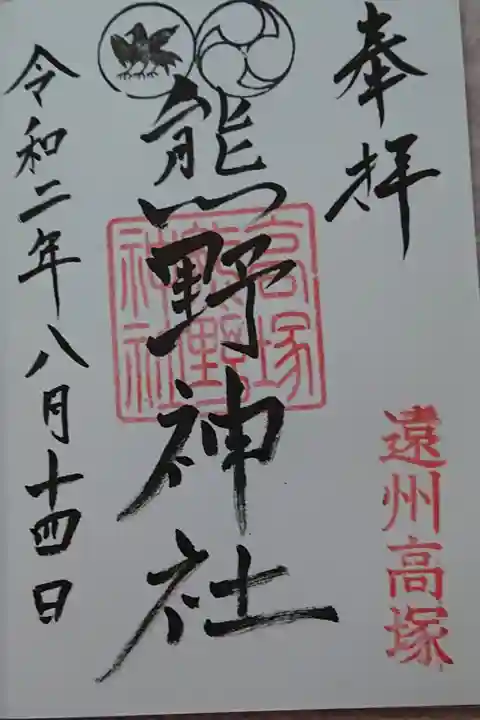 奉拝
遠州高塚
熊野神社
高塚
熊野
神社
令和二年八月十四日